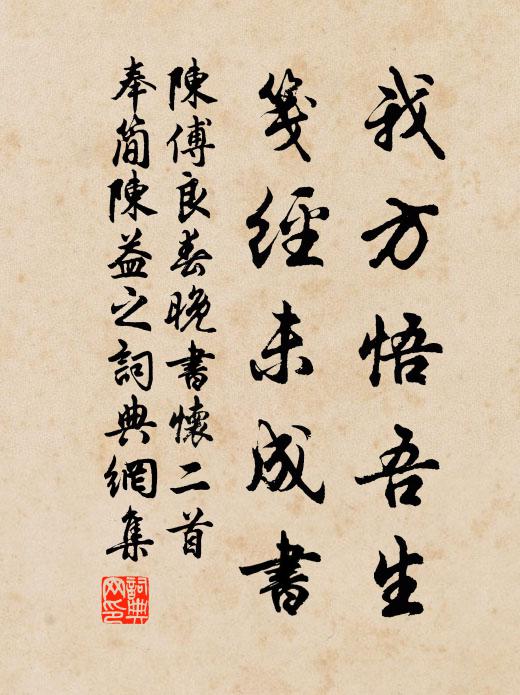 我方悟吾生
箋經未成書
陳傅良春晚書懷二首
奉簡陳益之詞典網集
詞典網印